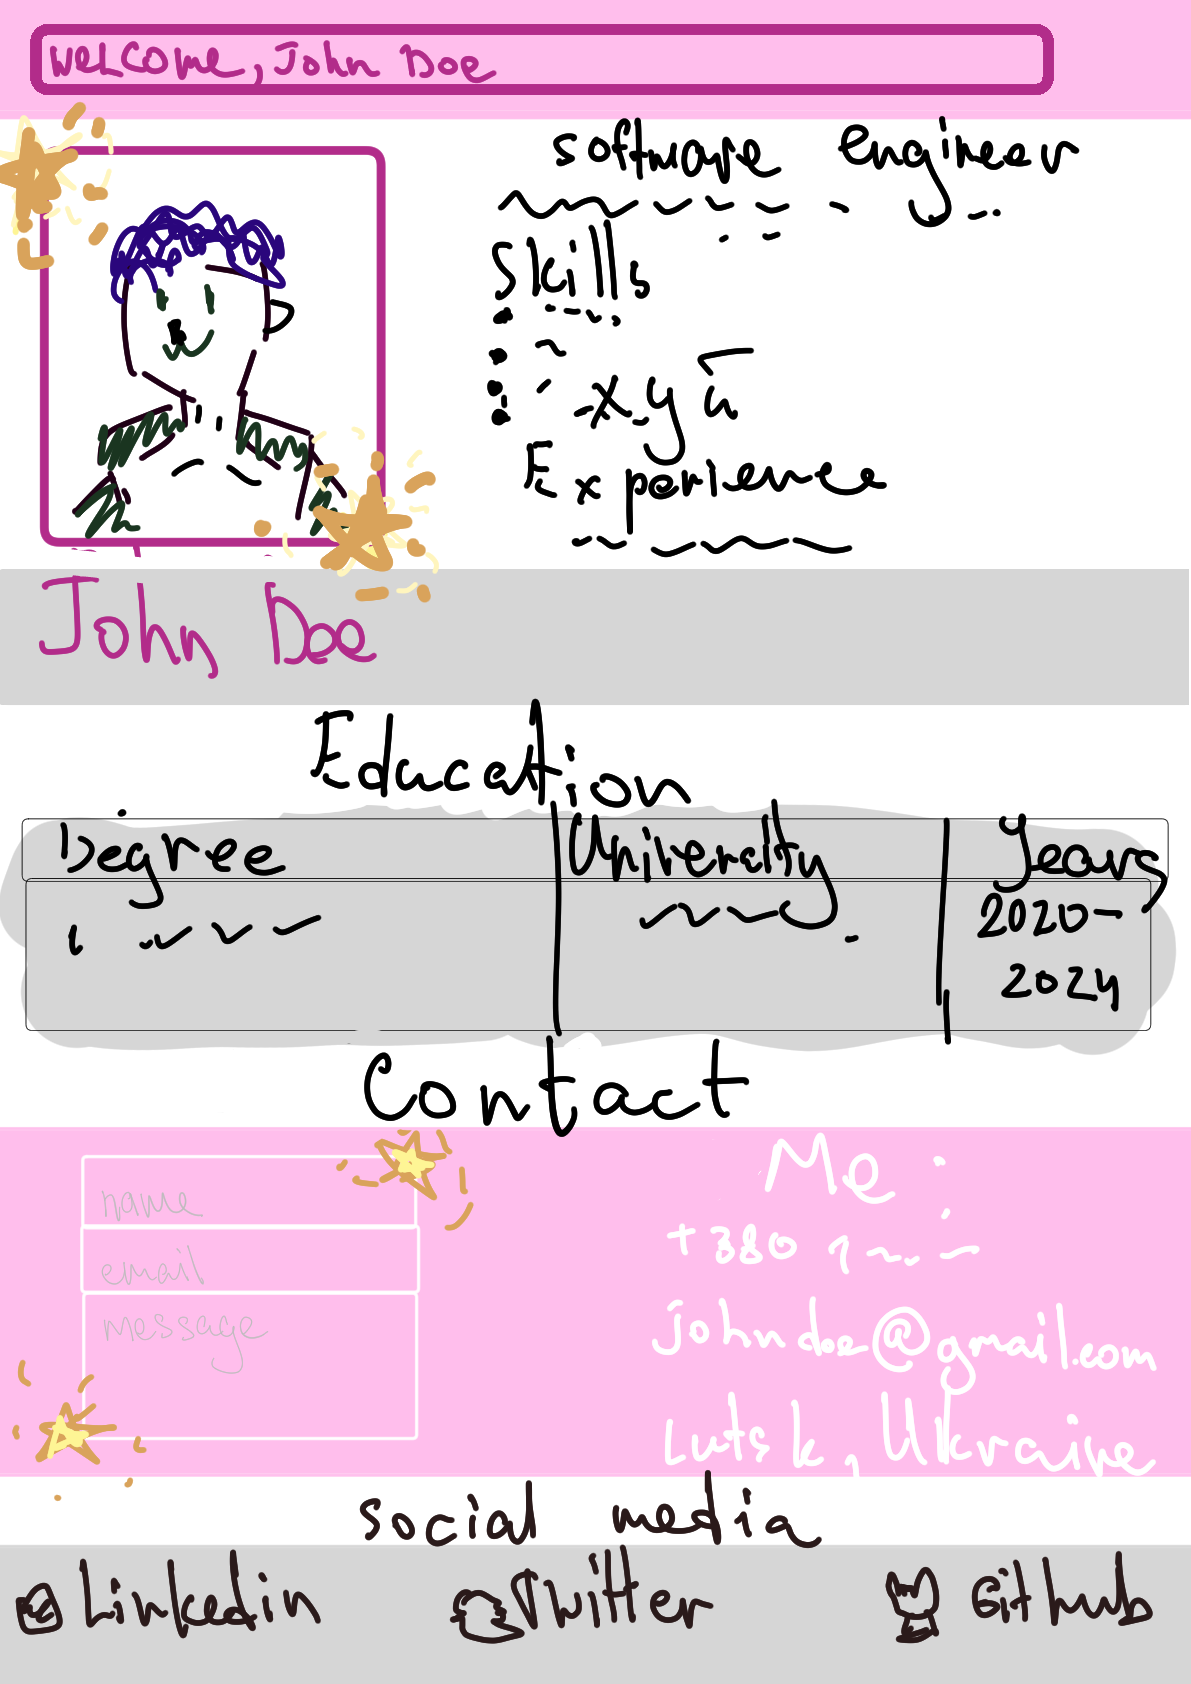 welcome, John Doe
software engineer
Skills
Experience
John Doe
Education
Degree University Years
2020-
2024
Contact
name
email
message
Me:
+380
johndoe@gmail.com
Lutsk, Ukraine
social media
Linkedin Twitter GitHub